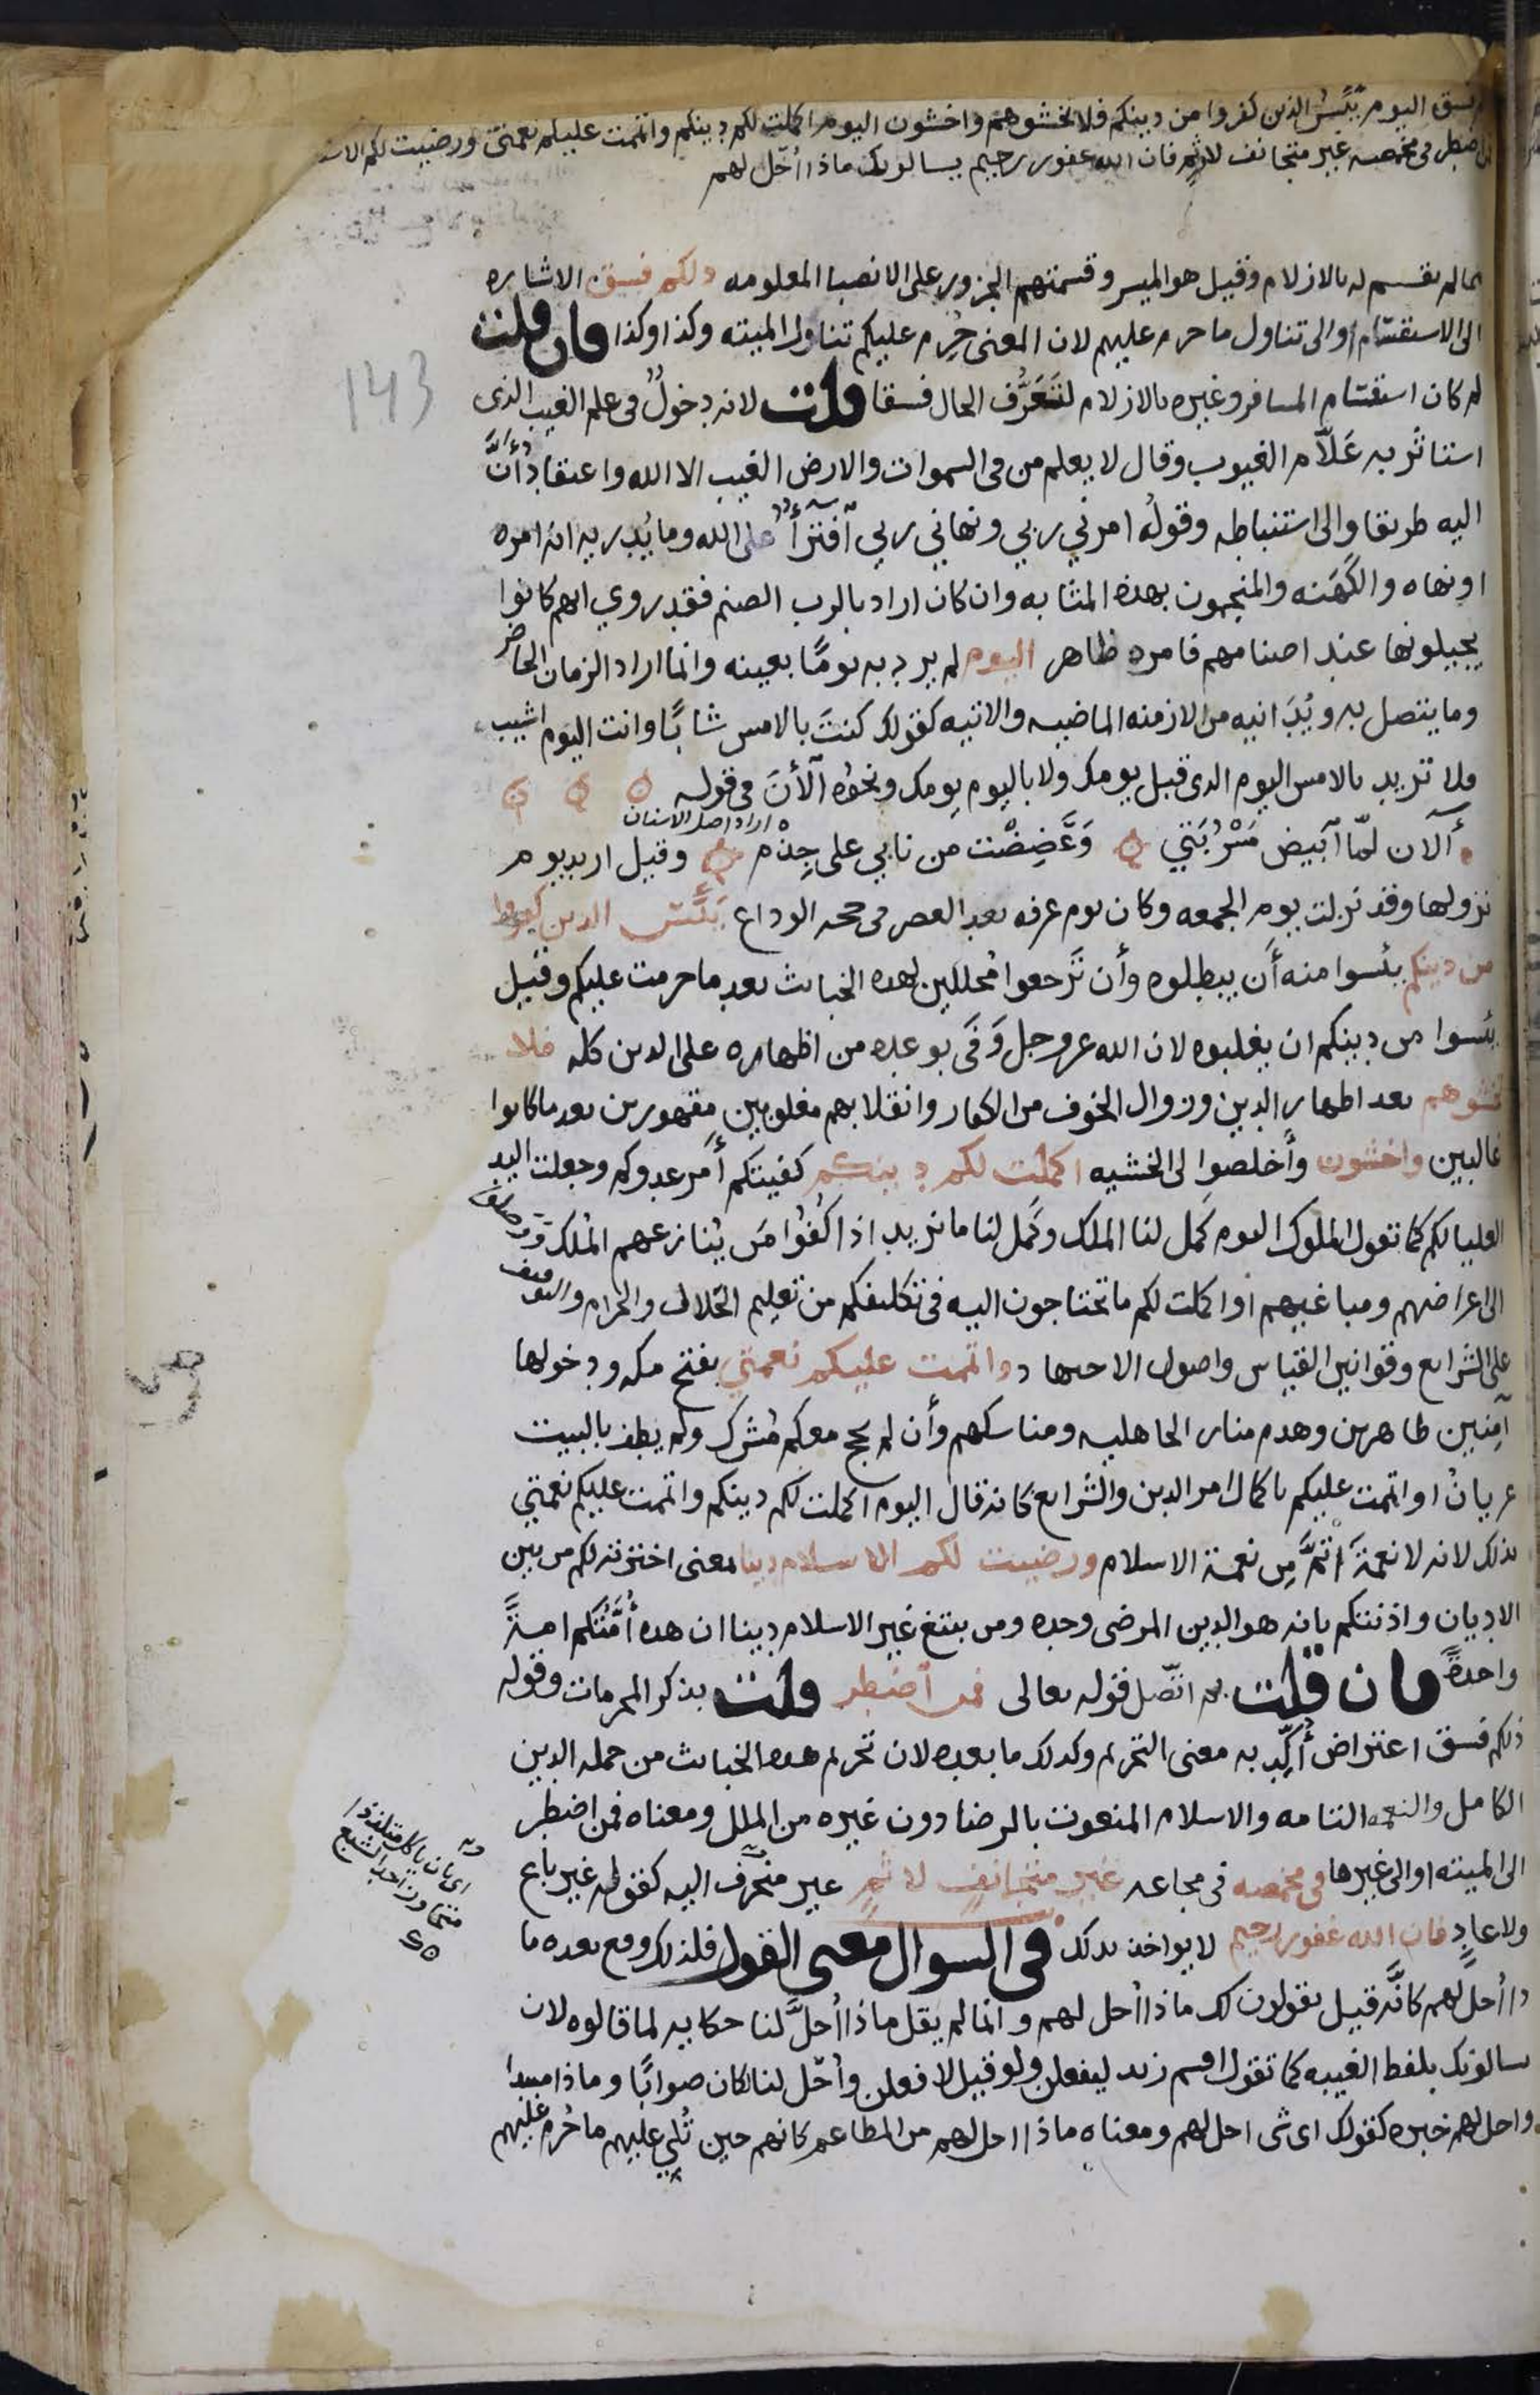 فسق اليوم يئس الذين كفروا من دينكم فلا تخشوهم واخشون اليوم اكملت لكم دينكم واتممت عليكم نعمتي ورضيت لكم
اضطر في مخمصه غير متجانف لاثم فان الله غفور رحيم يسالونك ماذا أحل لهم
مما لم يقسم له بالازلام وقيل هو الميسر وقسمتهم الجزور على الانصبا المعلومه ذلكم فسق الاشاره
الى الاستقسام او الى تناول ما حرم عليهم لان المعنى حُرِم عليكم تناول الميته وكذا وكذا فان قلت
لم كان استقسام المسافر وغيره بالازلام لتَعَرُّف الحال فسقا قلت لانه دخولٌ في علم الغيب الذي
استاثر به عَلّام الغيوب وقال لا يعلم من في السموات والارض الغيب الا الله واعتقادٌ أنَّ
اليه طريقا والى استنباطه وقولُه امرني ربي ونهاني ربي افتراءٌ على الله وما يُدريه انه امره
او نهاه والكَهَنه والمنجمون بهذه المثابه وان كان اراد بالرب الصنم فقد روي انهم كانوا
يجيلونها عند اصنامهم فامره ظاهر اليوم لم يرد به يومًا بعينه وانما اراد الزمان الحاضر
وما يتصل به ويُدَانيه من الازمنه الماضيه والاتيه كقولك كنتَ بالامس شابًا وانت اليوم اشيب
ولا تريد بالامس اليوم الذي قبل يومك ولا باليوم يومك ونحوُه الأنَ في قوله
اراد اصل الاسنان
ألآن لمّا ابيض مَسْرُبَتي وَعَضِضْت من نابي على جِذْم وقيل اريد يوم
نزولها وقد نزلت يوم الجمعه وكان يوم عرفه بعد العصر في حجه الوداع يئس الذين كفروا
من دينكم يئسوا منه أن يبطلوه وأن تَرجعوا مُحللين لهذه الخبائث بعد ما حرمت عليكم وقيل
يئسوا من دينكم ان يغلبوه لان الله عز وجل وَفَى بوعده من اظهاره على الدين كله فلا
تخشوهم بعد اظهار الدين وزوال الخوف من الكفار وانقلابهم مغلوبين مقهورين بعد ما كانوا
غالبين واخشون وأخلصوا لي الخشيه اكملت لكم دينكم كفيتكم أمر عدوكم وجعلت اليد
العليا لكم كما تقول الملوك اليوم كَمل لنا الملك وكَمل لنا ما نريد اذا كُفُوا مَن يُنازعهم المُلك ووصلوا
الى اغراضهم ومباغيهم أو اكملت لكم ما تحتاجون اليه في تكليفكم من تعليم الحلال والحرام والتوقيف
على الشرايع وقوانين القياس واصول الاجتهاد واتممت عليكم نعمتي بفتح مكه ودخولها
آمِنين ظاهرين وهدم منار الجاهليه ومناسكهم وأن لم يحج معكم مُشرك ولم يطف بالبيت
عريانٌ او اتممت عليكم باكمال امر الدين والشرايع كانه قال اليوم اكملت لكم دينكم واتممت عليكم نعمتي
بذلك لانه لا نعمةَ أتمَّ مِن نعمة الاسلام ورضيت لكم الاسلام دينا يعنى اخترته لكم من بين
الاديان واذنتكم بانه هو الدين المرضي وحده ومن يبتغ غير الاسلام دينا ان هذه أُمَّتُكم امةً
واحدةً فان قلت بم اتّصل قوله تعالى فمن اضطر قلت بذكر المحرمات وقوله
ذلكم فسق اعتراض أُكِّد به معنى التحريم وكذلك ما بعده لان تحريم هذه الخبائث من جمله الدين
الكامل والنعمه التامه والاسلام المنعوت بالرضا دون غيره من الملل ومعناه فمن اضطر
الى الميته او الى غيرها في مخمصه في مجاعه غير متجانف لاثم غير منحرف اليه كقوله غير باغ
اى بان ياكل متلذذا
متجاوزا حد الشبع
ولا عادٍ فان الله غفور رحيم لا يواخذ بذلك في السوال معنى القول فلذلك وقع بعده ما
ذا أُحل لهم كأنَّه قيل يقولون لك ماذا أُحل لهم وانما لم يقل ماذا أُحلَّ لنا حكايه لما قالوه لان
يسالونك بلفظ الغيبه كما تقول اقسم زيد ليفعلن ولو قيل لافعلن وأُحّل لنا لكان صوابًا وماذا مبتدا
واحل لهم خبره كقولك اى شى احل لهم ومعناه ماذا احل لهم من المطاعم كانهم حين تُلي عليهم ما حُرم عليهم
143